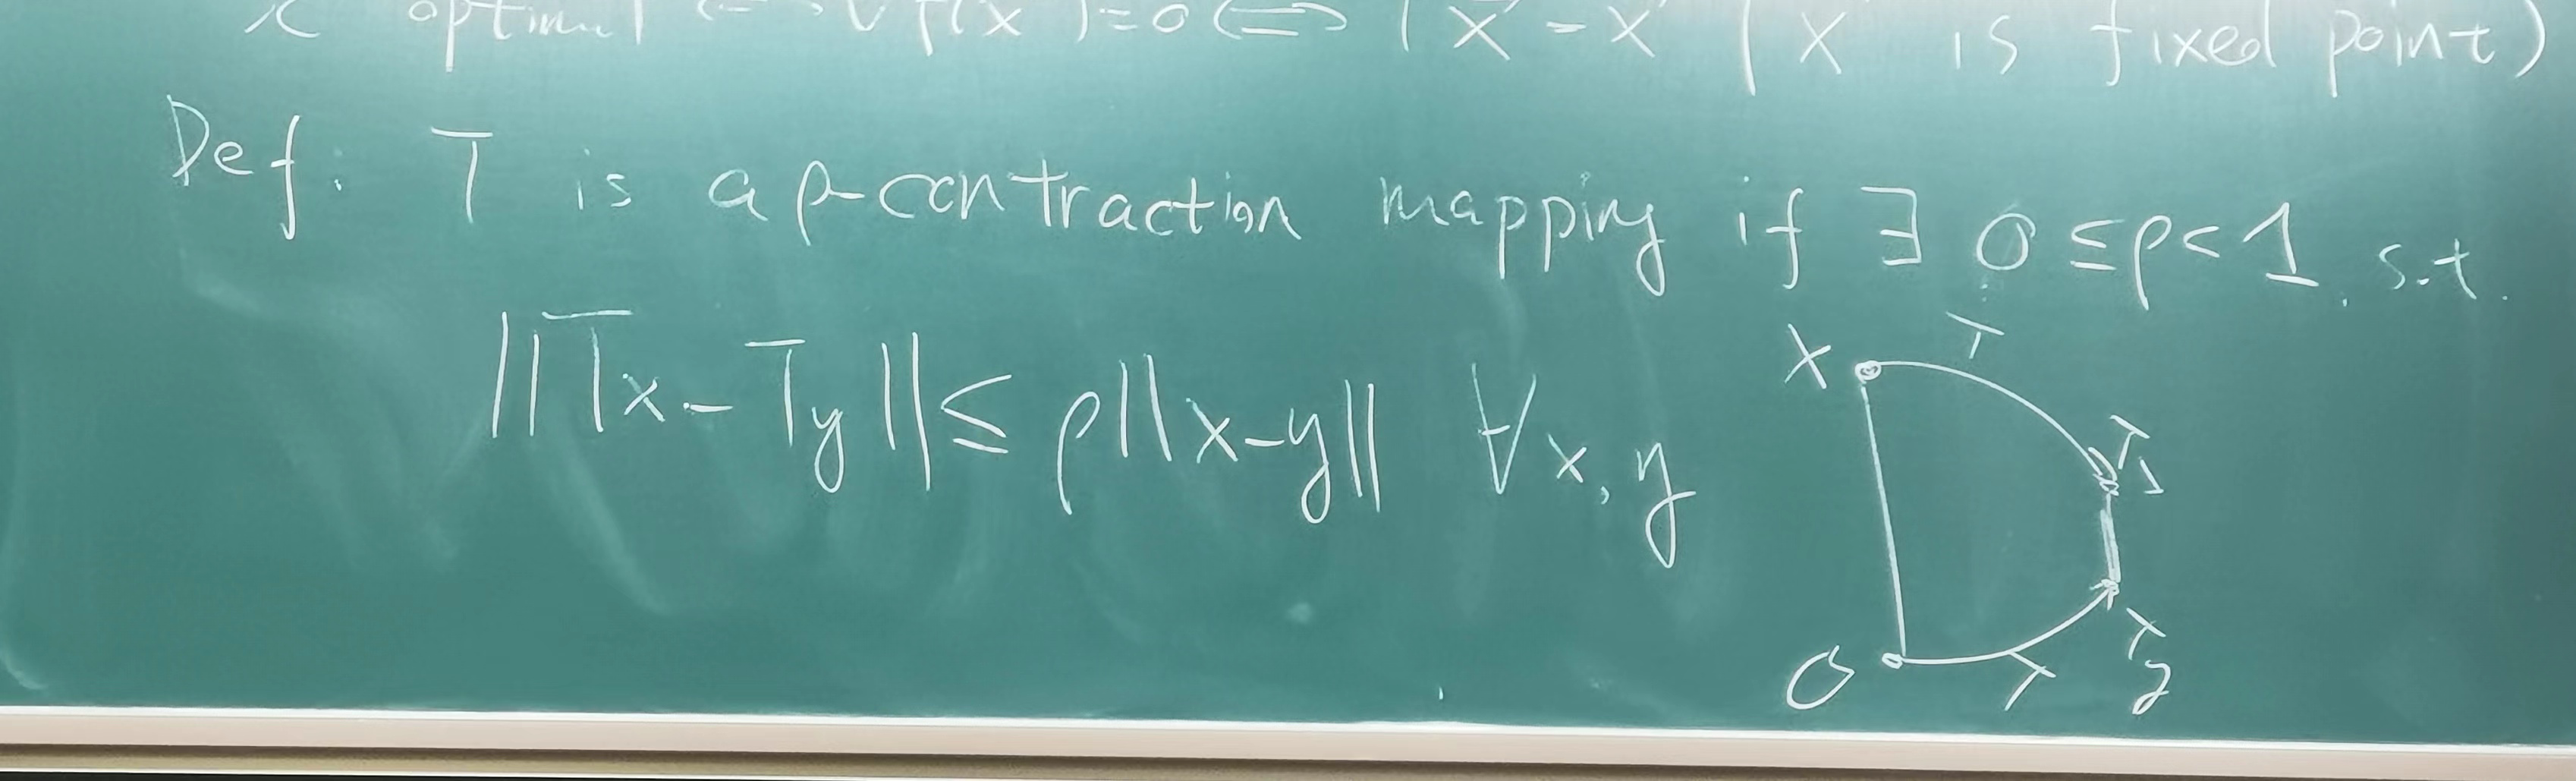 x optimal ⟺ ∇f(x)=0 ⟺ Tx=x (x is fixed point)
Def: T is a ρ-contraction mapping if ∃ 0≤ρ<1, s.t.
||Tx-Ty||≤ρ||x-y|| ∀x,y
X T
T
T